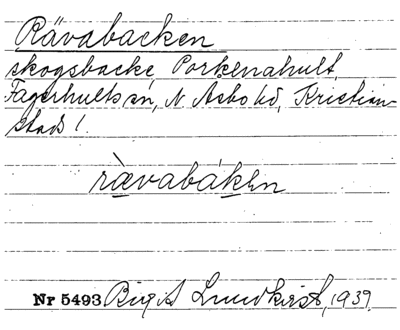 Rävabacken
skogsbacke, Porkenahult,
Fagerhults sn, N Åsbo hd, Kristian-
stads l.
rävabáken
Nr 5493 Birgit Lundkvist, 1939